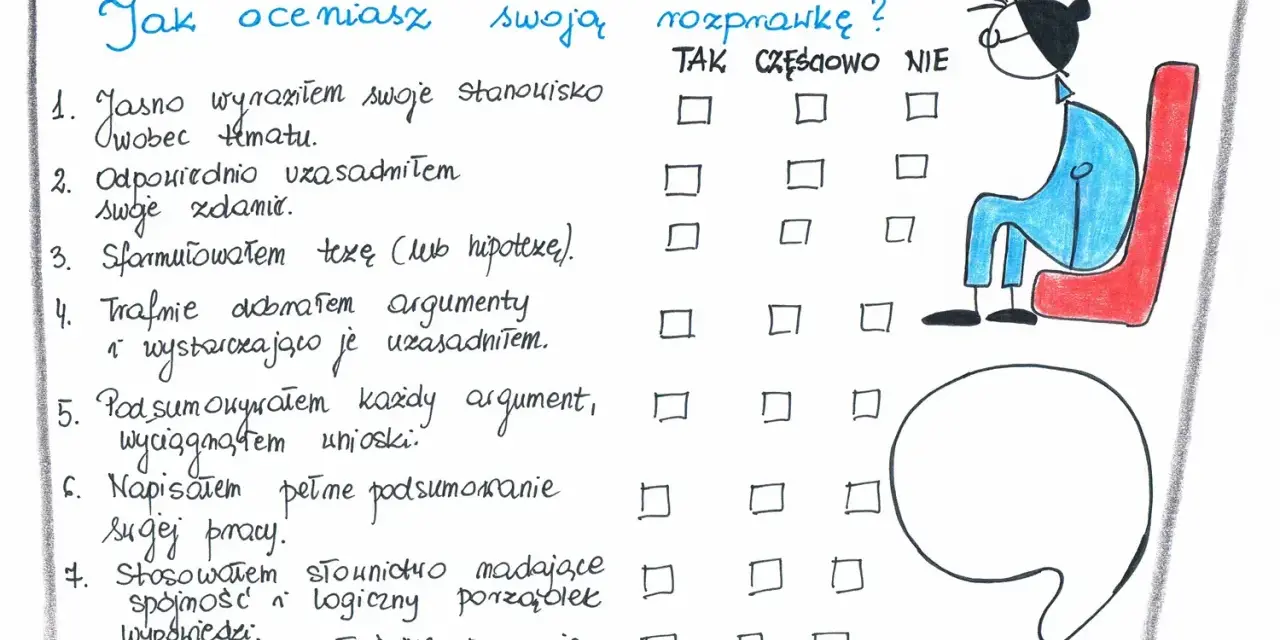 Jak oceniasz swoją rozprawkę?
TAK CZĘŚCIOWO NIE
1. Jasno wyraziłem swoje stanowisko
wobec tematu.
2. Odpowiednio uzasadniłem
swoje zdanie.
3. Sformułowałem tezę (lub hipotezę).
4. Trafnie dobrałem argumenty
i wystarczająco je uzasadniłem.
5. Podsumowywałem każdy argument,
wyciągnąłem wnioski.
6. Napisałem pełne podsumowanie
swojej pracy.
7. Stosowałem słownictwo nadające
spójność i logiczny porządek
wypowiedzi.